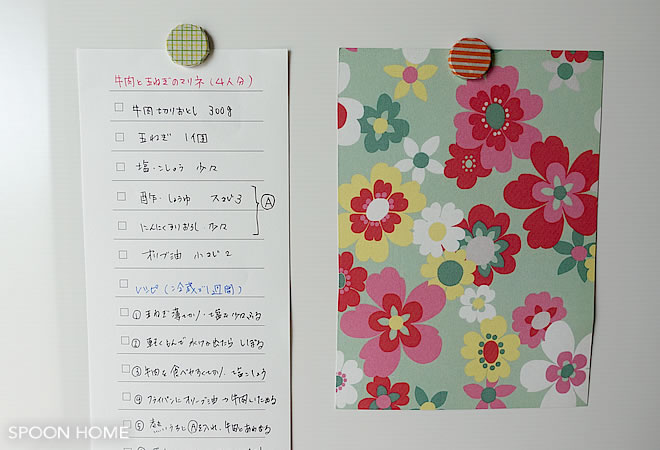 牛肉と玉ねぎのマリネ(4人分)
牛肉切りおとし 300g
玉ねぎ 1個
塩・こしょう 少々
酢・しょうゆ 大さじ3
Ⓐ
にんにくすりおろし 少々
オリーブ油 小さじ2
レシピ(冷蔵で1週間)
① 玉ねぎ薄切り・塩を少々ふる
② 軽くもんで 水けが出たら しぼる
③ 牛肉を食べやすく切り・塩こしょう
④ フライパンにオリーブ油→牛肉いためる
⑤ 熱いうちにⒶを入れ、牛肉とあわせる
SPOON HOME